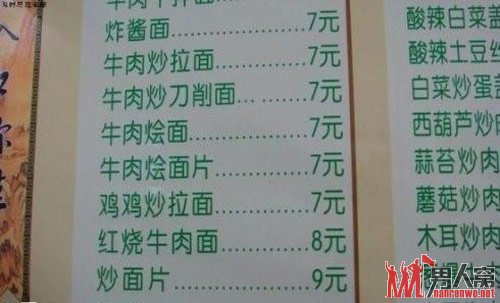 炸酱面..................7元
牛肉炒拉面............7元
牛肉炒刀削面.........7元
牛肉烩面...............7元
牛肉烩面片............7元
鸡鸡炒拉面............7元
红烧牛肉面............8元
炒面片..................9元
酸辣白菜
酸辣土豆丝
白菜炒蛋
西葫芦炒
蒜苔炒肉
蘑菇炒肉
木耳炒肉
男人窝
nanrenwo.net